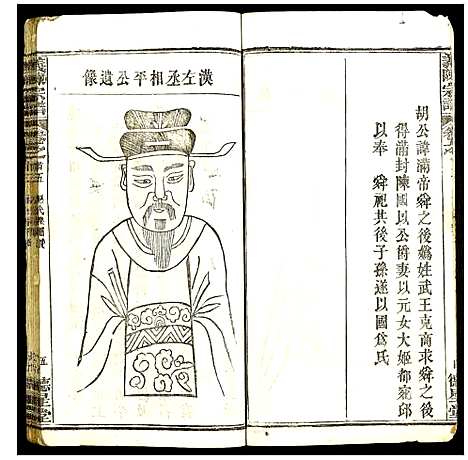 胡公諱滿帝舜之後媯姓武王克商求舜之後
得滿封陳國以公爵妻以元女大姬都宛邱
以奉 舜祀其後子孫遂以國為氏
德星堂
漢左丞相平公遺像
義陳宗譜
五
德星堂